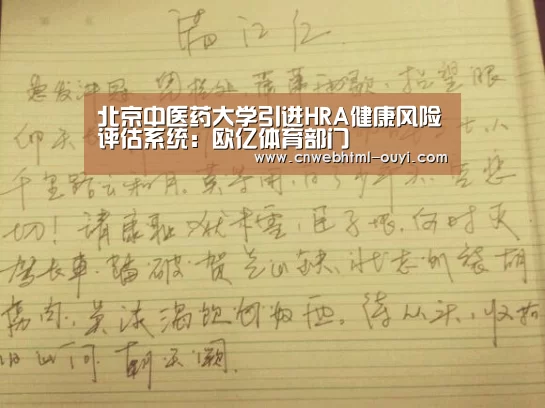 满江红
怒发冲冠 凭栏处,萧萧雨歇,抬望眼
北京中医药大学引进HRA健康风险
评估系统：欧亿体育部门
www.cnwebhtml-ouyi.com
仰天
千里路云和月.莫等闲,白了少年头,空悲
切! 靖康耻 犹未雪,臣子恨,何时灭
驾长车.踏破.贺兰山缺,壮志饥餐胡
虏肉,笑谈渴饮匈奴血,待从头,收拾
旧山河 朝天阙.